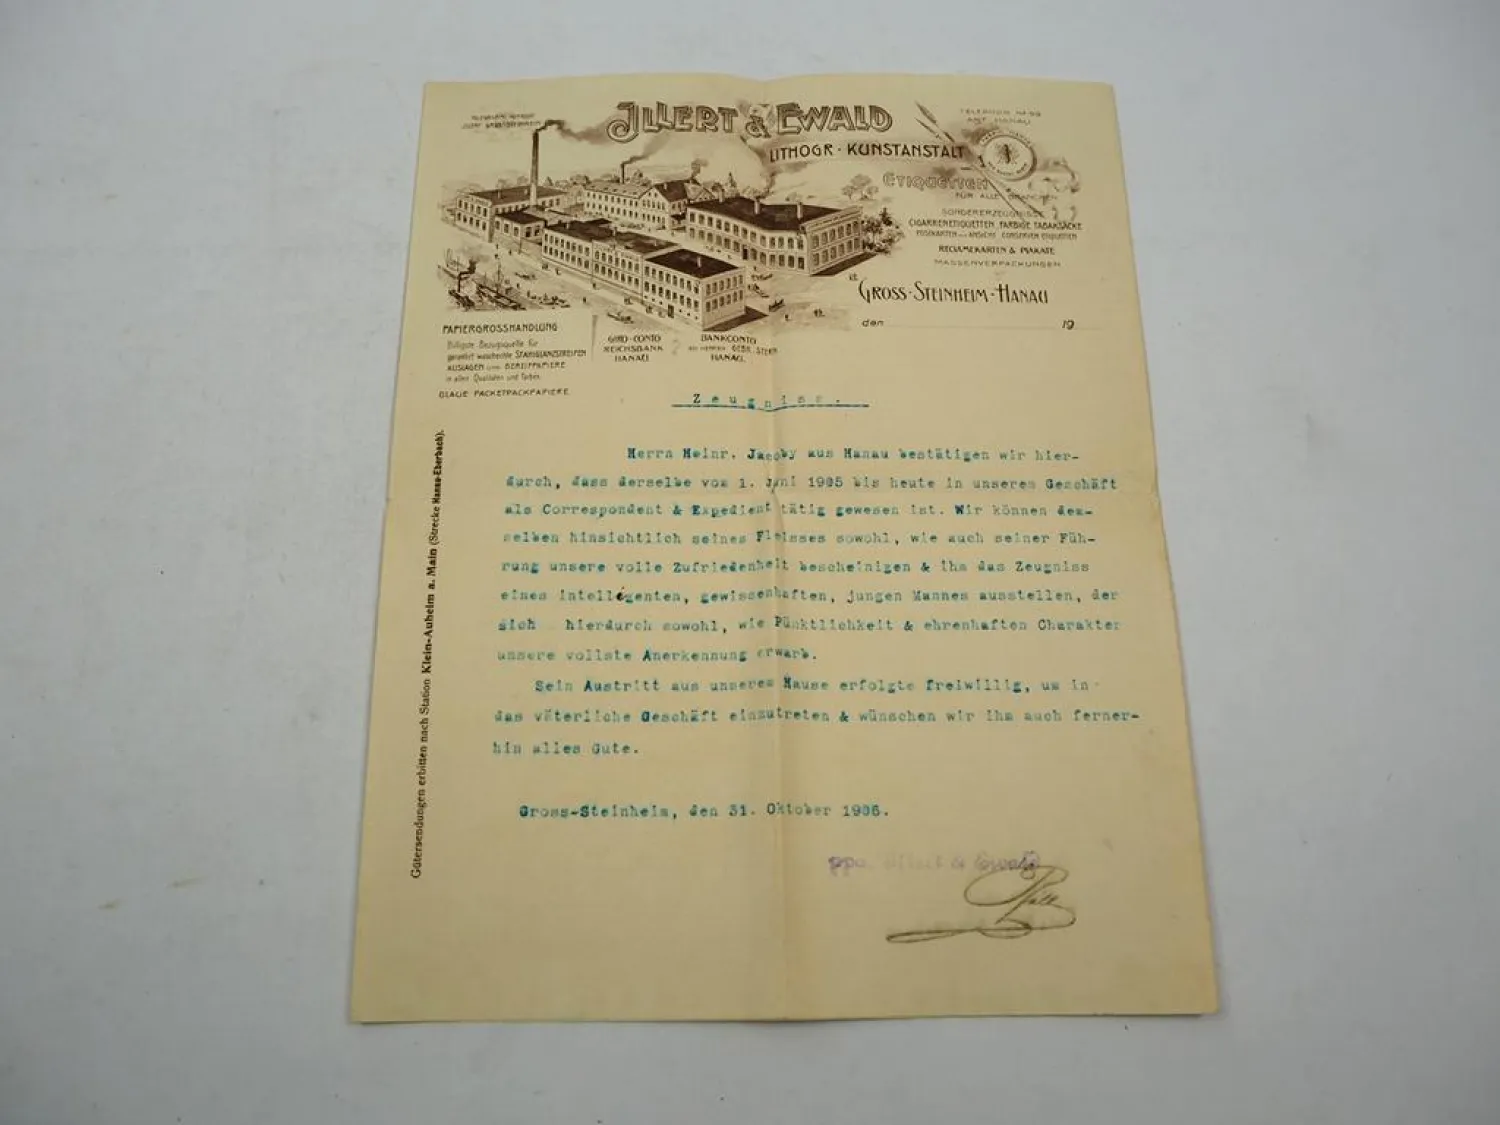 ILLERT & EWALD
LITHOGR. KUNSTANSTALT
TELEPHON No 99
AMT HANAU
ETIQUETTEN
FÜR ALLE BRANCHEN
SONDERERZEUGNISSE
CIGARRENETIQUETTEN, FARBIGE TABAKSÄCKE
POSTKARTEN ANSICHT CONSERVEN ETIQUETTEN
RECLAMEKARTEN & PLAKATE
MASSENVERPACKUNGEN
GROSS-STEINHEIM-HANAU
den 19
PAPIERGROSSHANDLUNG
Billigste Bezugsquelle für
garantirt waschechte STANIGLANZSTREIFEN
AUSLAGEN UND BERIPPAPIERE
in allen Qualitäten und Farben.
BLAUE PACKETPACKPAPIERE.
GIRO-CONTO
REICHSBANK
HANAU
BANKCONTO
BEI HERREN GEBR. STERN
HANAU.
Gütersendungen erbitten nach Station Klein-Auheim a. Main (Strecke Hanau-Eberbach).
Zeugniss.
Herrn Heinr. Jacoby aus Hanau bestätigen wir hier-
durch, dass derselbe vom 1. Juni 1905 bis heute in unserem Geschäft
als Correspondent & Expedient tätig gewesen ist. Wir können dem-
selben hinsichtlich seines Fleisses sowohl, wie auch seiner Füh-
rung unsere volle Zufriedenheit bescheinigen & ihm das Zeugniss
eines intelligenten, gewissenhaften, jungen Mannes ausstellen, der
sich hierdurch sowohl, wie Pünktlichkeit & ehrenhaften Charakter
unsere vollste Anerkennung erwarb.
Sein Austritt aus unserem Hause erfolgte freiwillig, um in
das väterliche Geschäft einzutreten & wünschen wir ihm auch ferner-
hin alles Gute.
Gross-Steinheim, den 31. Oktober 1906.
ppa. Illert & Ewald